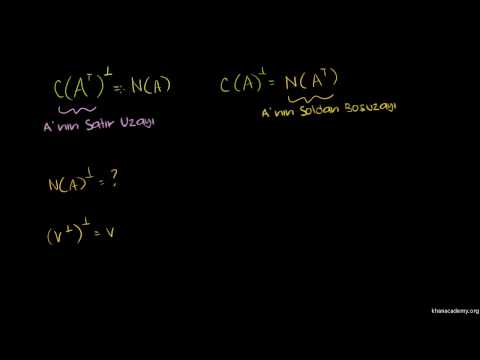 C(Aᵀ)^⊥ = N(A)
A'nın Satır Uzayı
C(A)^⊥ = N(Aᵀ)
A'nın Soldan Bosuzayı
N(A)^⊥ = ?
(V^⊥)^⊥ = V
khanacademy.org